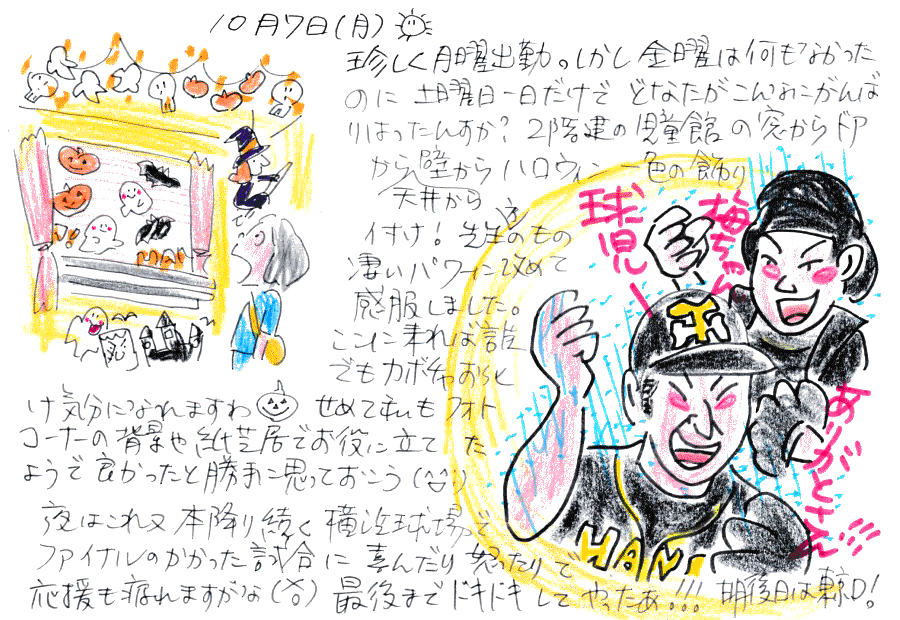 10月7日(月)
珍しく月曜出勤。しかし金曜は何もなかった
のに 土曜日一日だけで どなたがこんなにがんば
りはったんすか? 2階建の児童館の窓からドア
から壁から ハロウィン一色の飾り
天井から
付け! 先生方のもの
凄いパワーに改めて
感服しました。
ここに来れば誰
でもカボチャおらと
け気分になれますわ せめて私もフォト
コーナーの背景や紙芝居でお役に立てた
ようで良かったと勝手に思っておこう(^^)
夜はこれ又本降り続く横浜球場で
ファイナルのかかった試合に喜んだり怒ったりで
応援も疲れますがな 最後までドキドキしてやったあ!!! 明後日は東京D!
球児ー
梅ちゃん
ありがとさん!!!
HAN